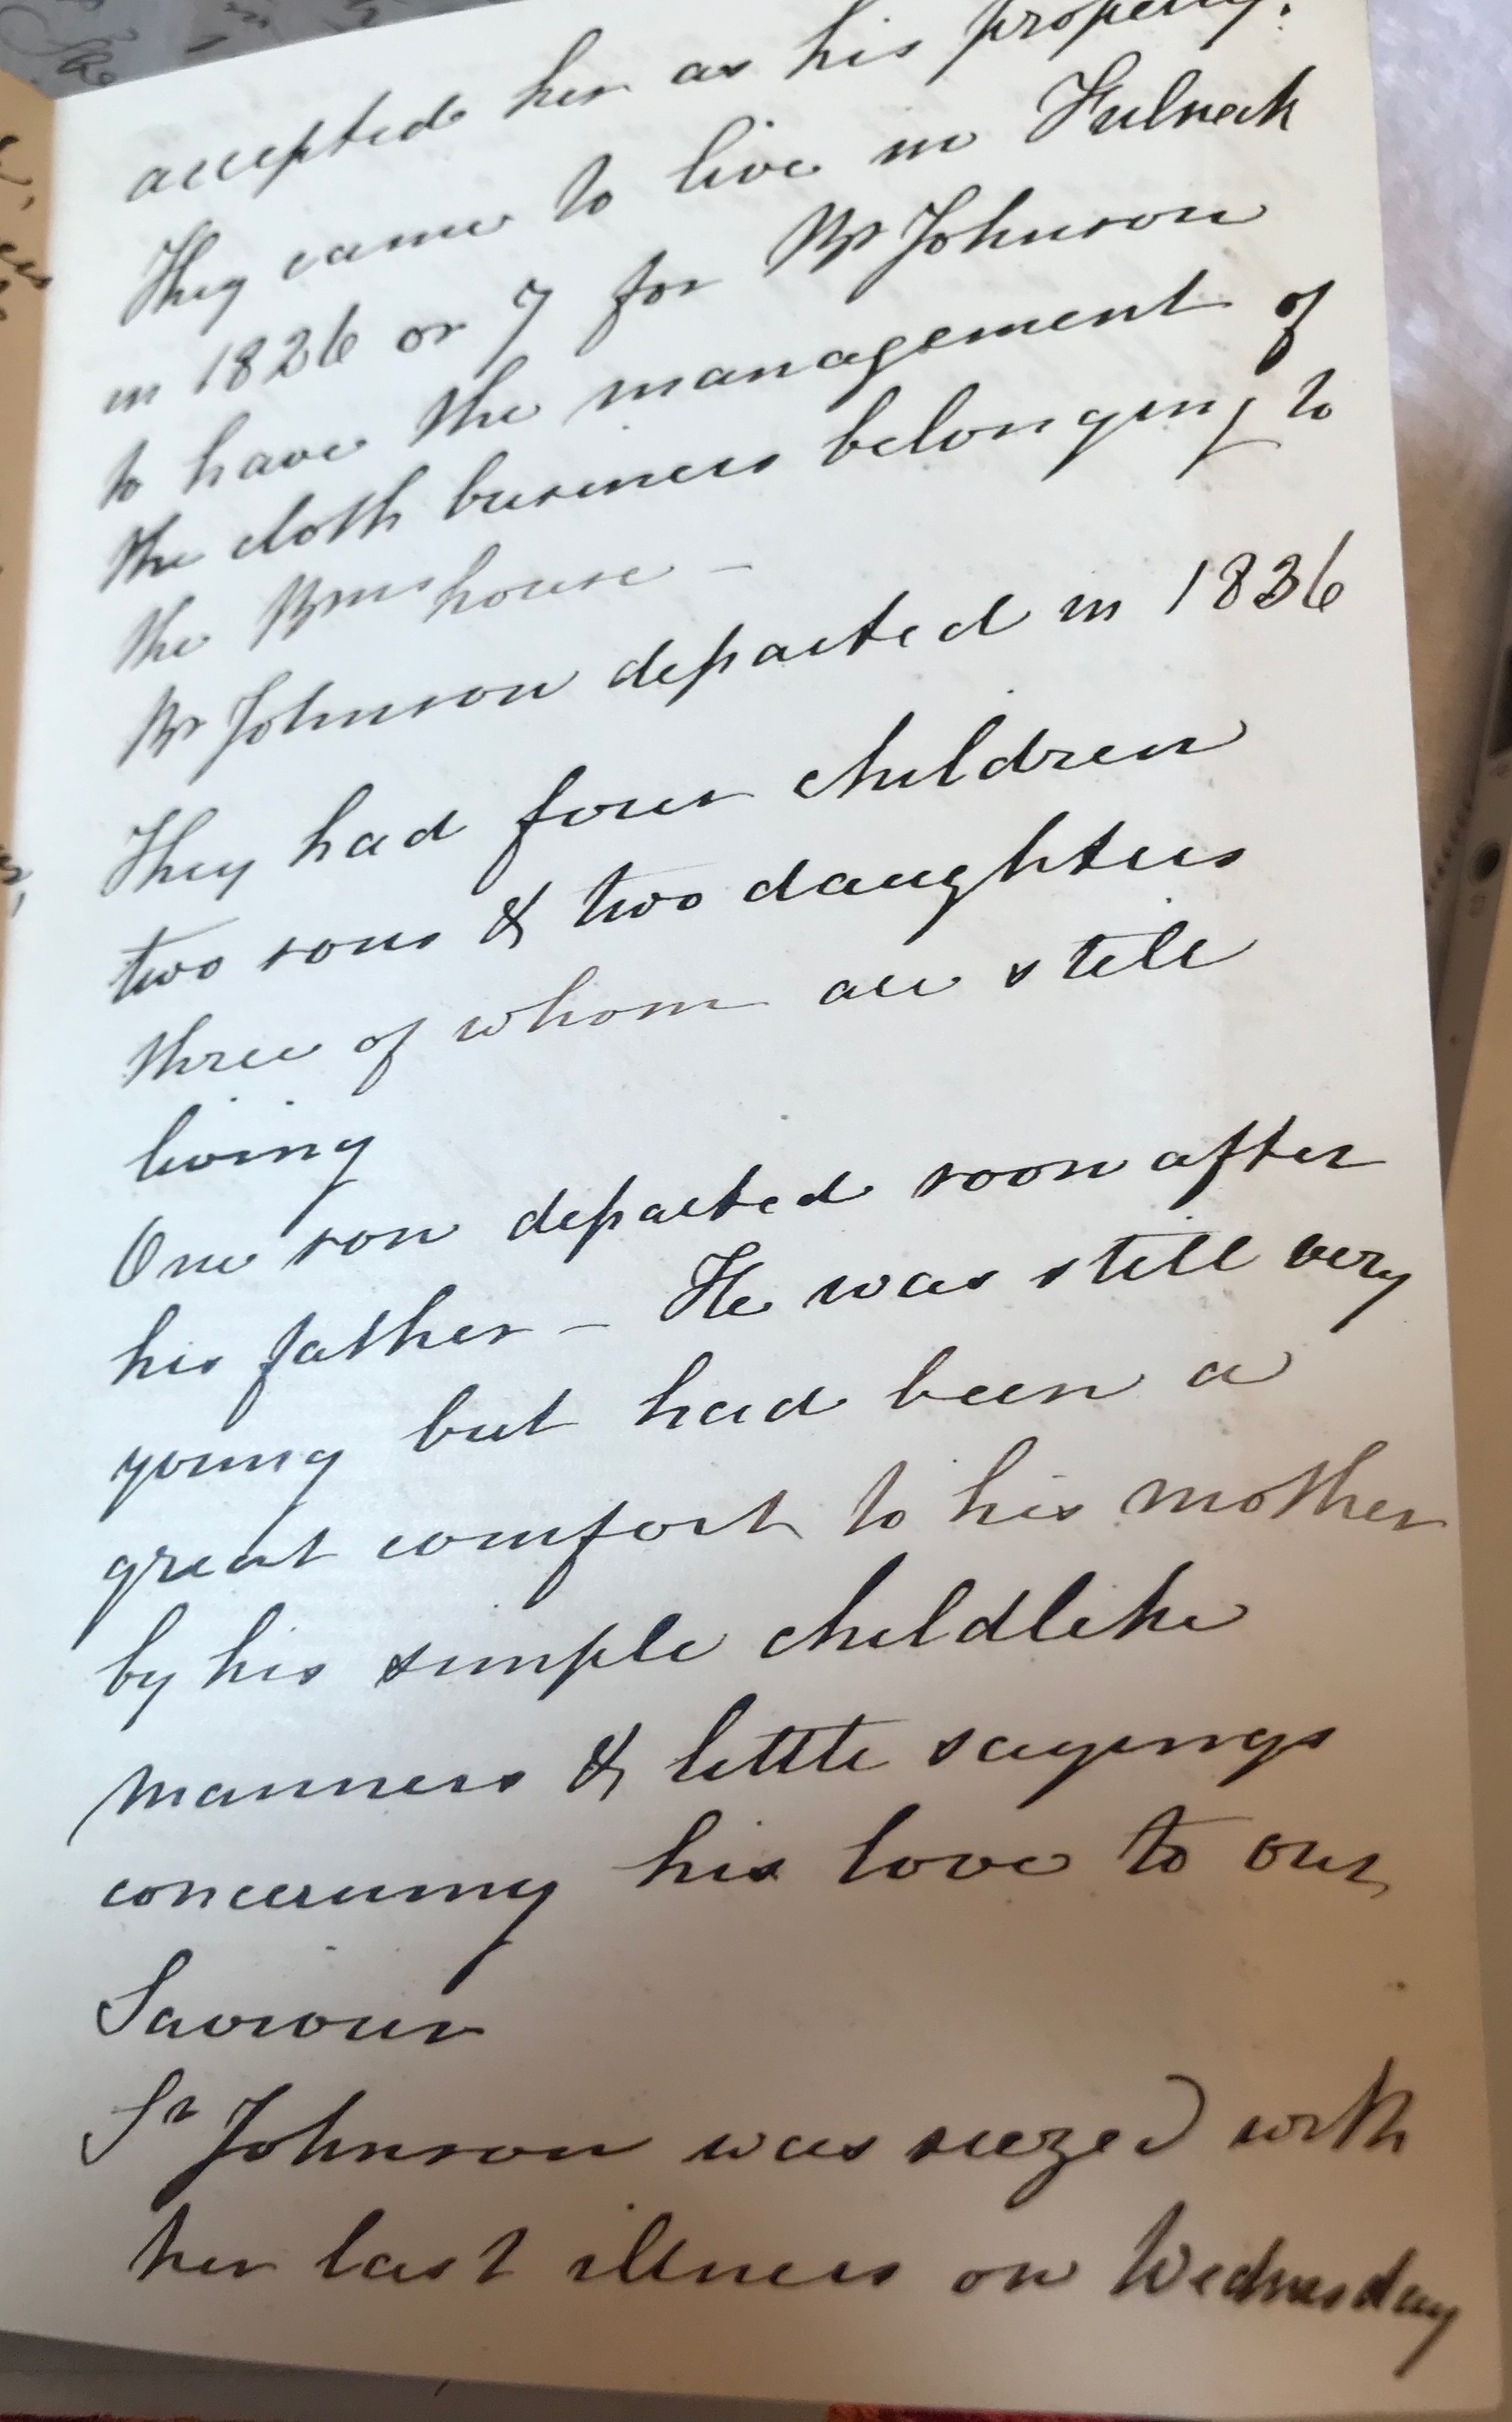 accepted her as his property.
They came to live in Fulneck
in 1826 or 7 for Br Johnson
to have the management of
the cloth business belonging to
the Brns house –
Br Johnson departed in 1836
They had four children
two sons & two daughters
three of whom are still
living
One son departed soon after
his father – He was still very
young but had been a
great comfort to his mother
by his simple childlike
manners & little sayings
concerning his love to our
Saviour
Sr Johnson was siezed with
her last illness on Wednesday